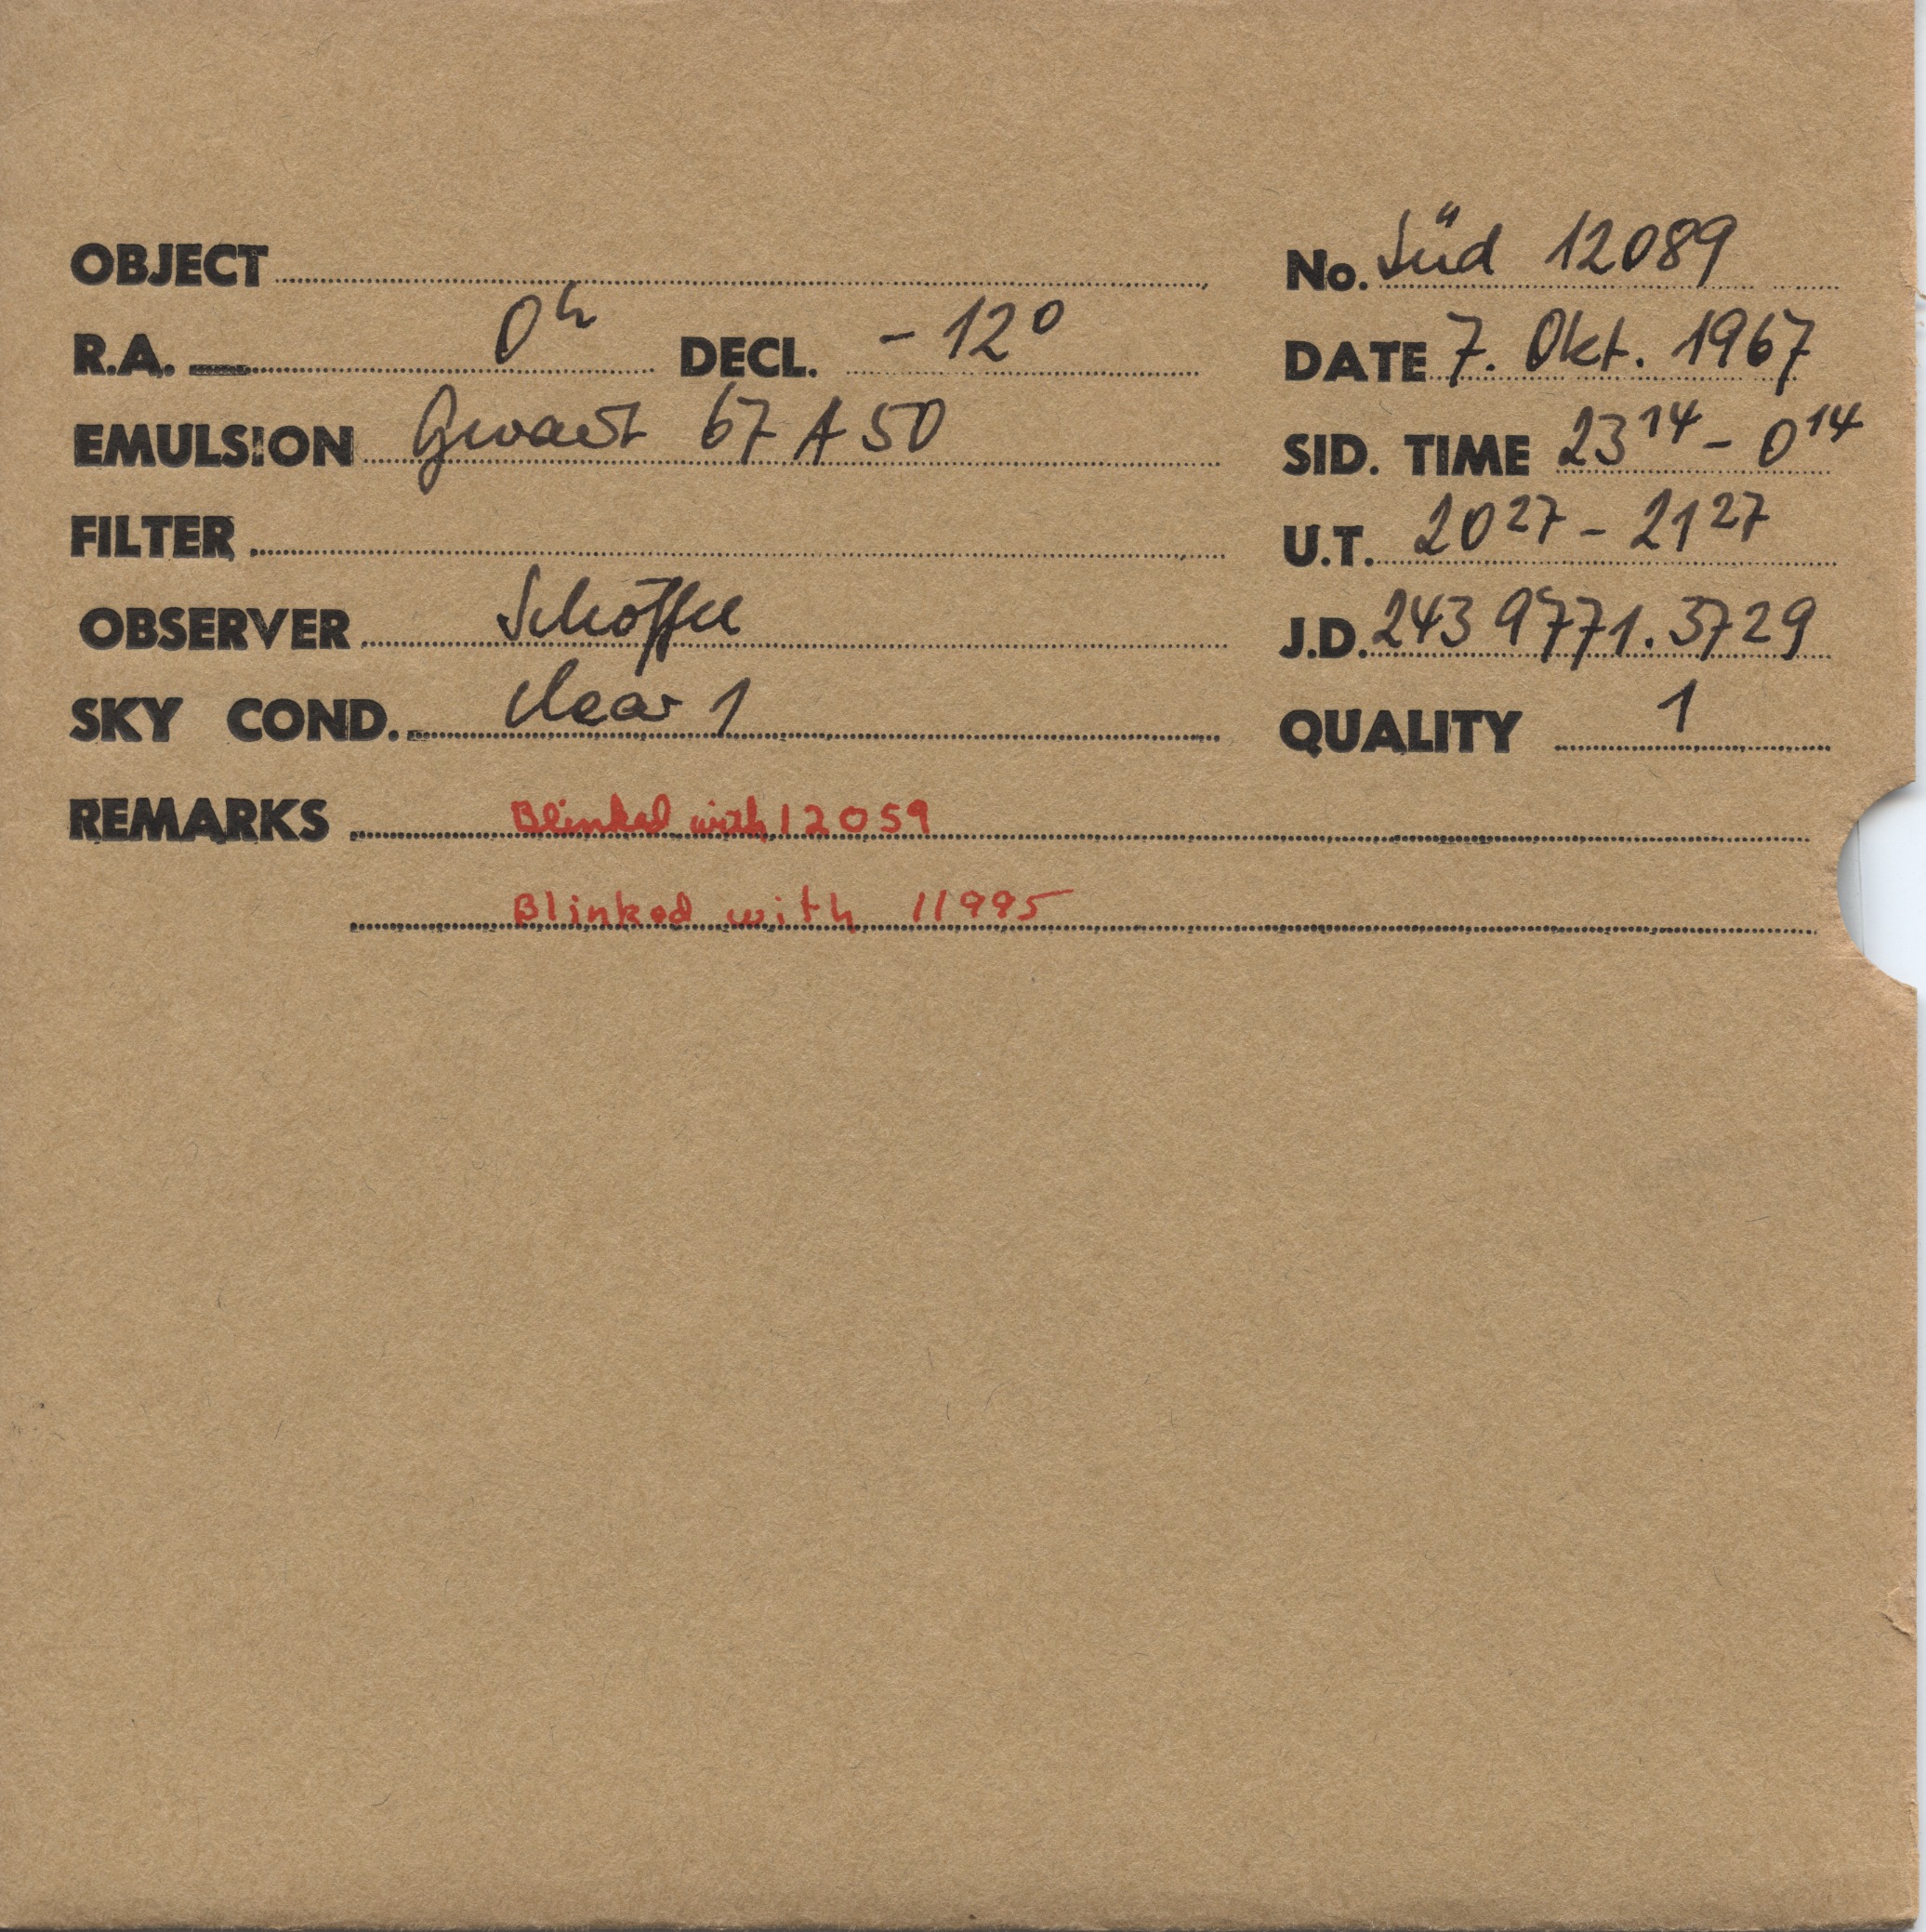 OBJECT No. Süd 12089
R.A. 0h DECL. - 12° DATE 7. Okt. 1967
EMULSION Gevaert 67 A 50 SID. TIME 23 14 - 0 14
FILTER U.T. 20 27 - 21 27
OBSERVER Schöffel J.D. 243 9771.3729
SKY COND. clear 1 QUALITY 1
REMARKS Blinked with 12059
Blinked with 11995